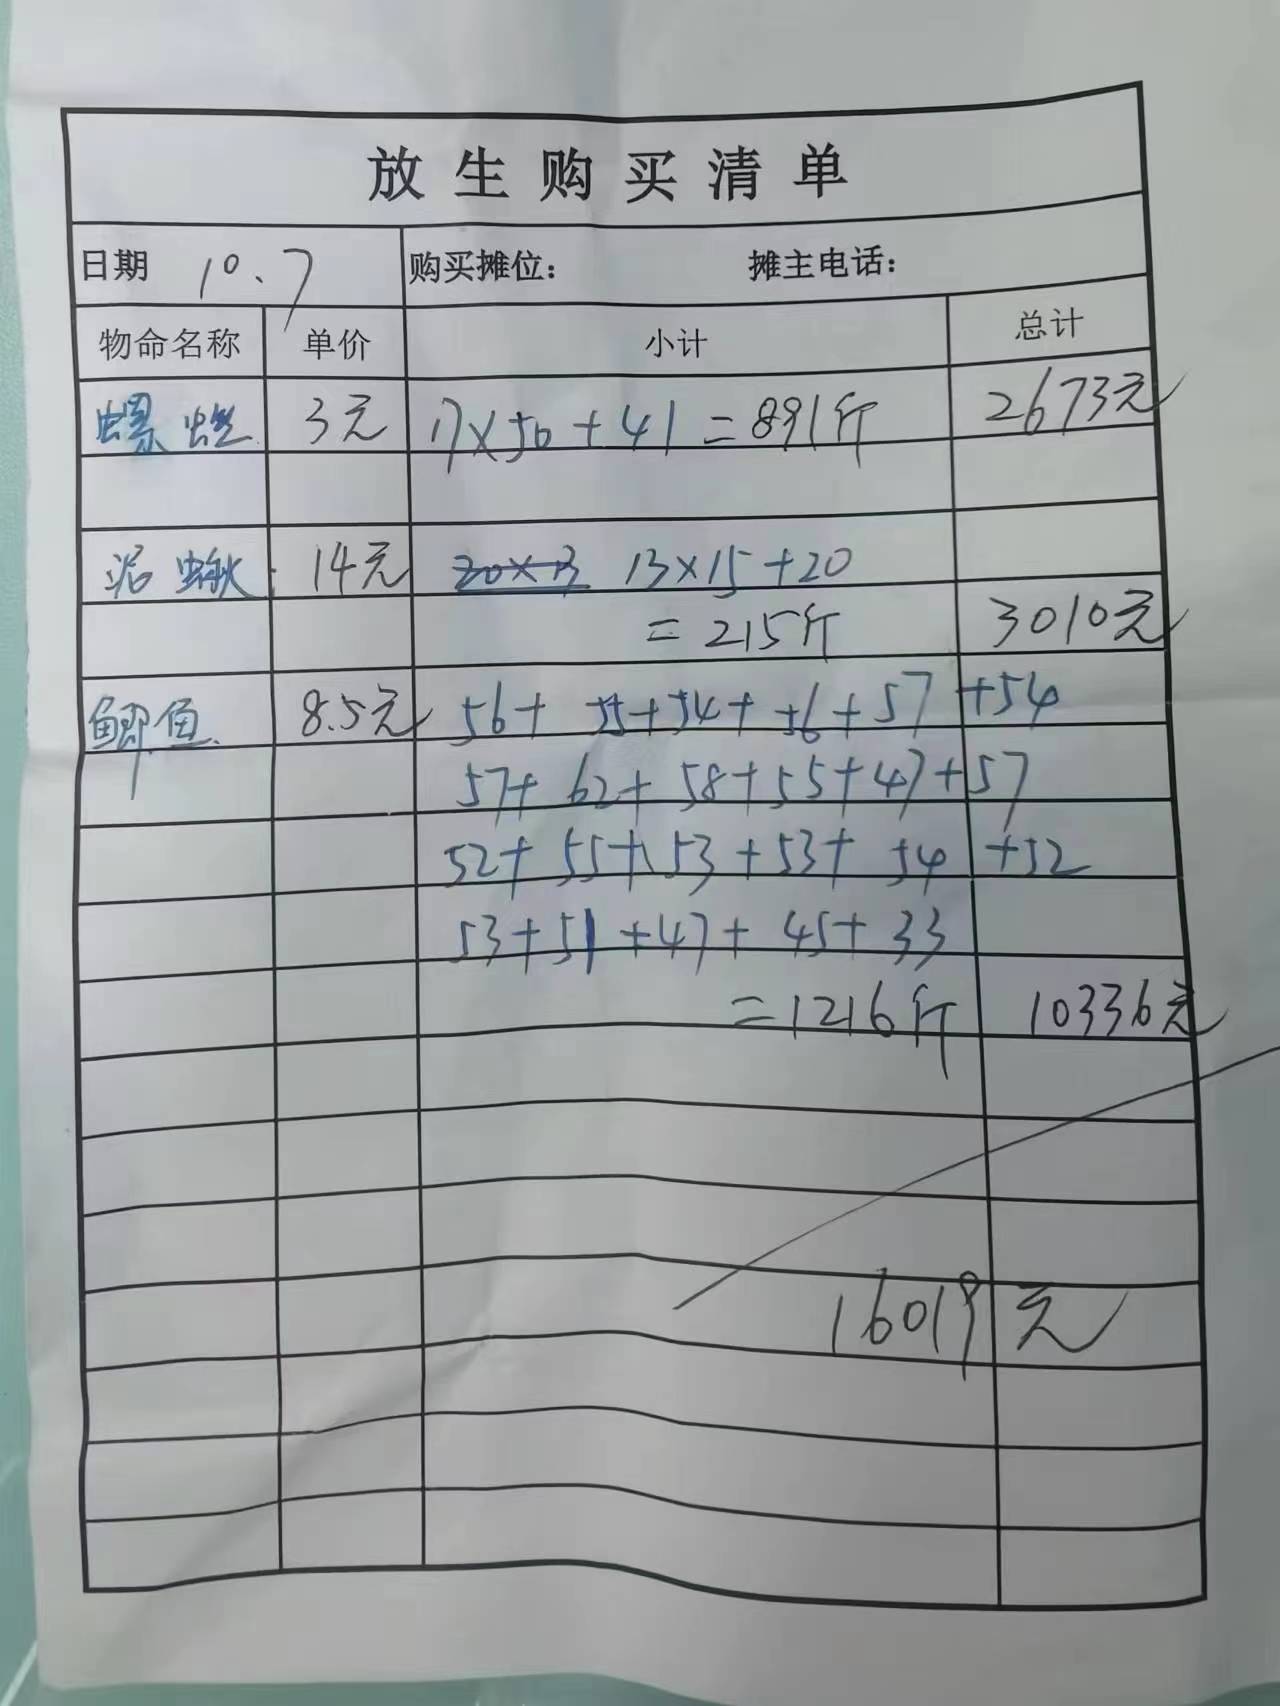 放生购买清单
日期 10.7 购买摊位： 摊主电话：
物命名称 单价 小计 总计
螺蛳 3元 17×50+41=891斤 2673元
泥鳅 14元 20×13 13×15+20
=215斤 3010元
鲫鱼 8.5元 56+55+54+56+57+54
57+62+58+55+47+57
52+55+53+53+54+52
53+51+47+45+33
=1216斤 10336元
16019元